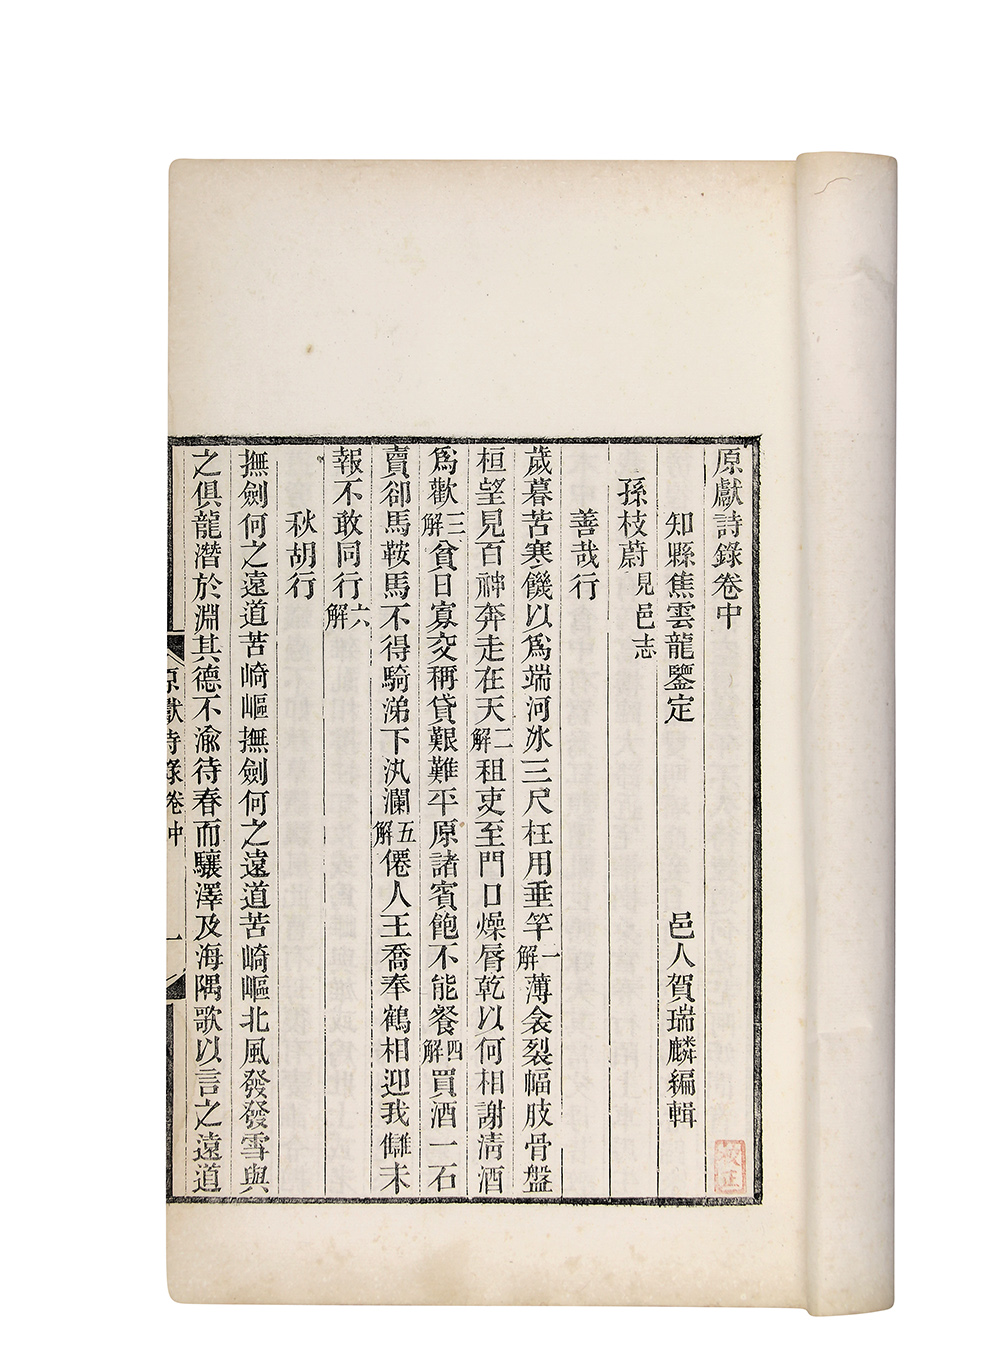 原獻詩錄卷中
知縣焦雲龍鑒定 邑人賀瑞麟編輯
校正
孫枝蔚見邑志
善哉行
歲暮苦寒饑以爲端河冰三尺枉用垂竿一解薄衾裂幅肢骨盤
桓望見百神奔走在天二解租吏至門口燥脣乾以何相謝淸酒
爲歡三解貧日寡交稱貸艱難平原諸賓飽不能餐四解買酒一石
賣卻馬鞍馬不得騎涕下汍瀾五解僊人王喬奉鶴相迎我讎未
報不敢同行六解
秋胡行
撫劍何之遠道苦崎嶇撫劍何之遠道苦崎嶇北風發發雪與
之俱龍潛於淵其德不渝待春而驤澤及海隅歌以言之遠道
原獻詩錄卷中
一